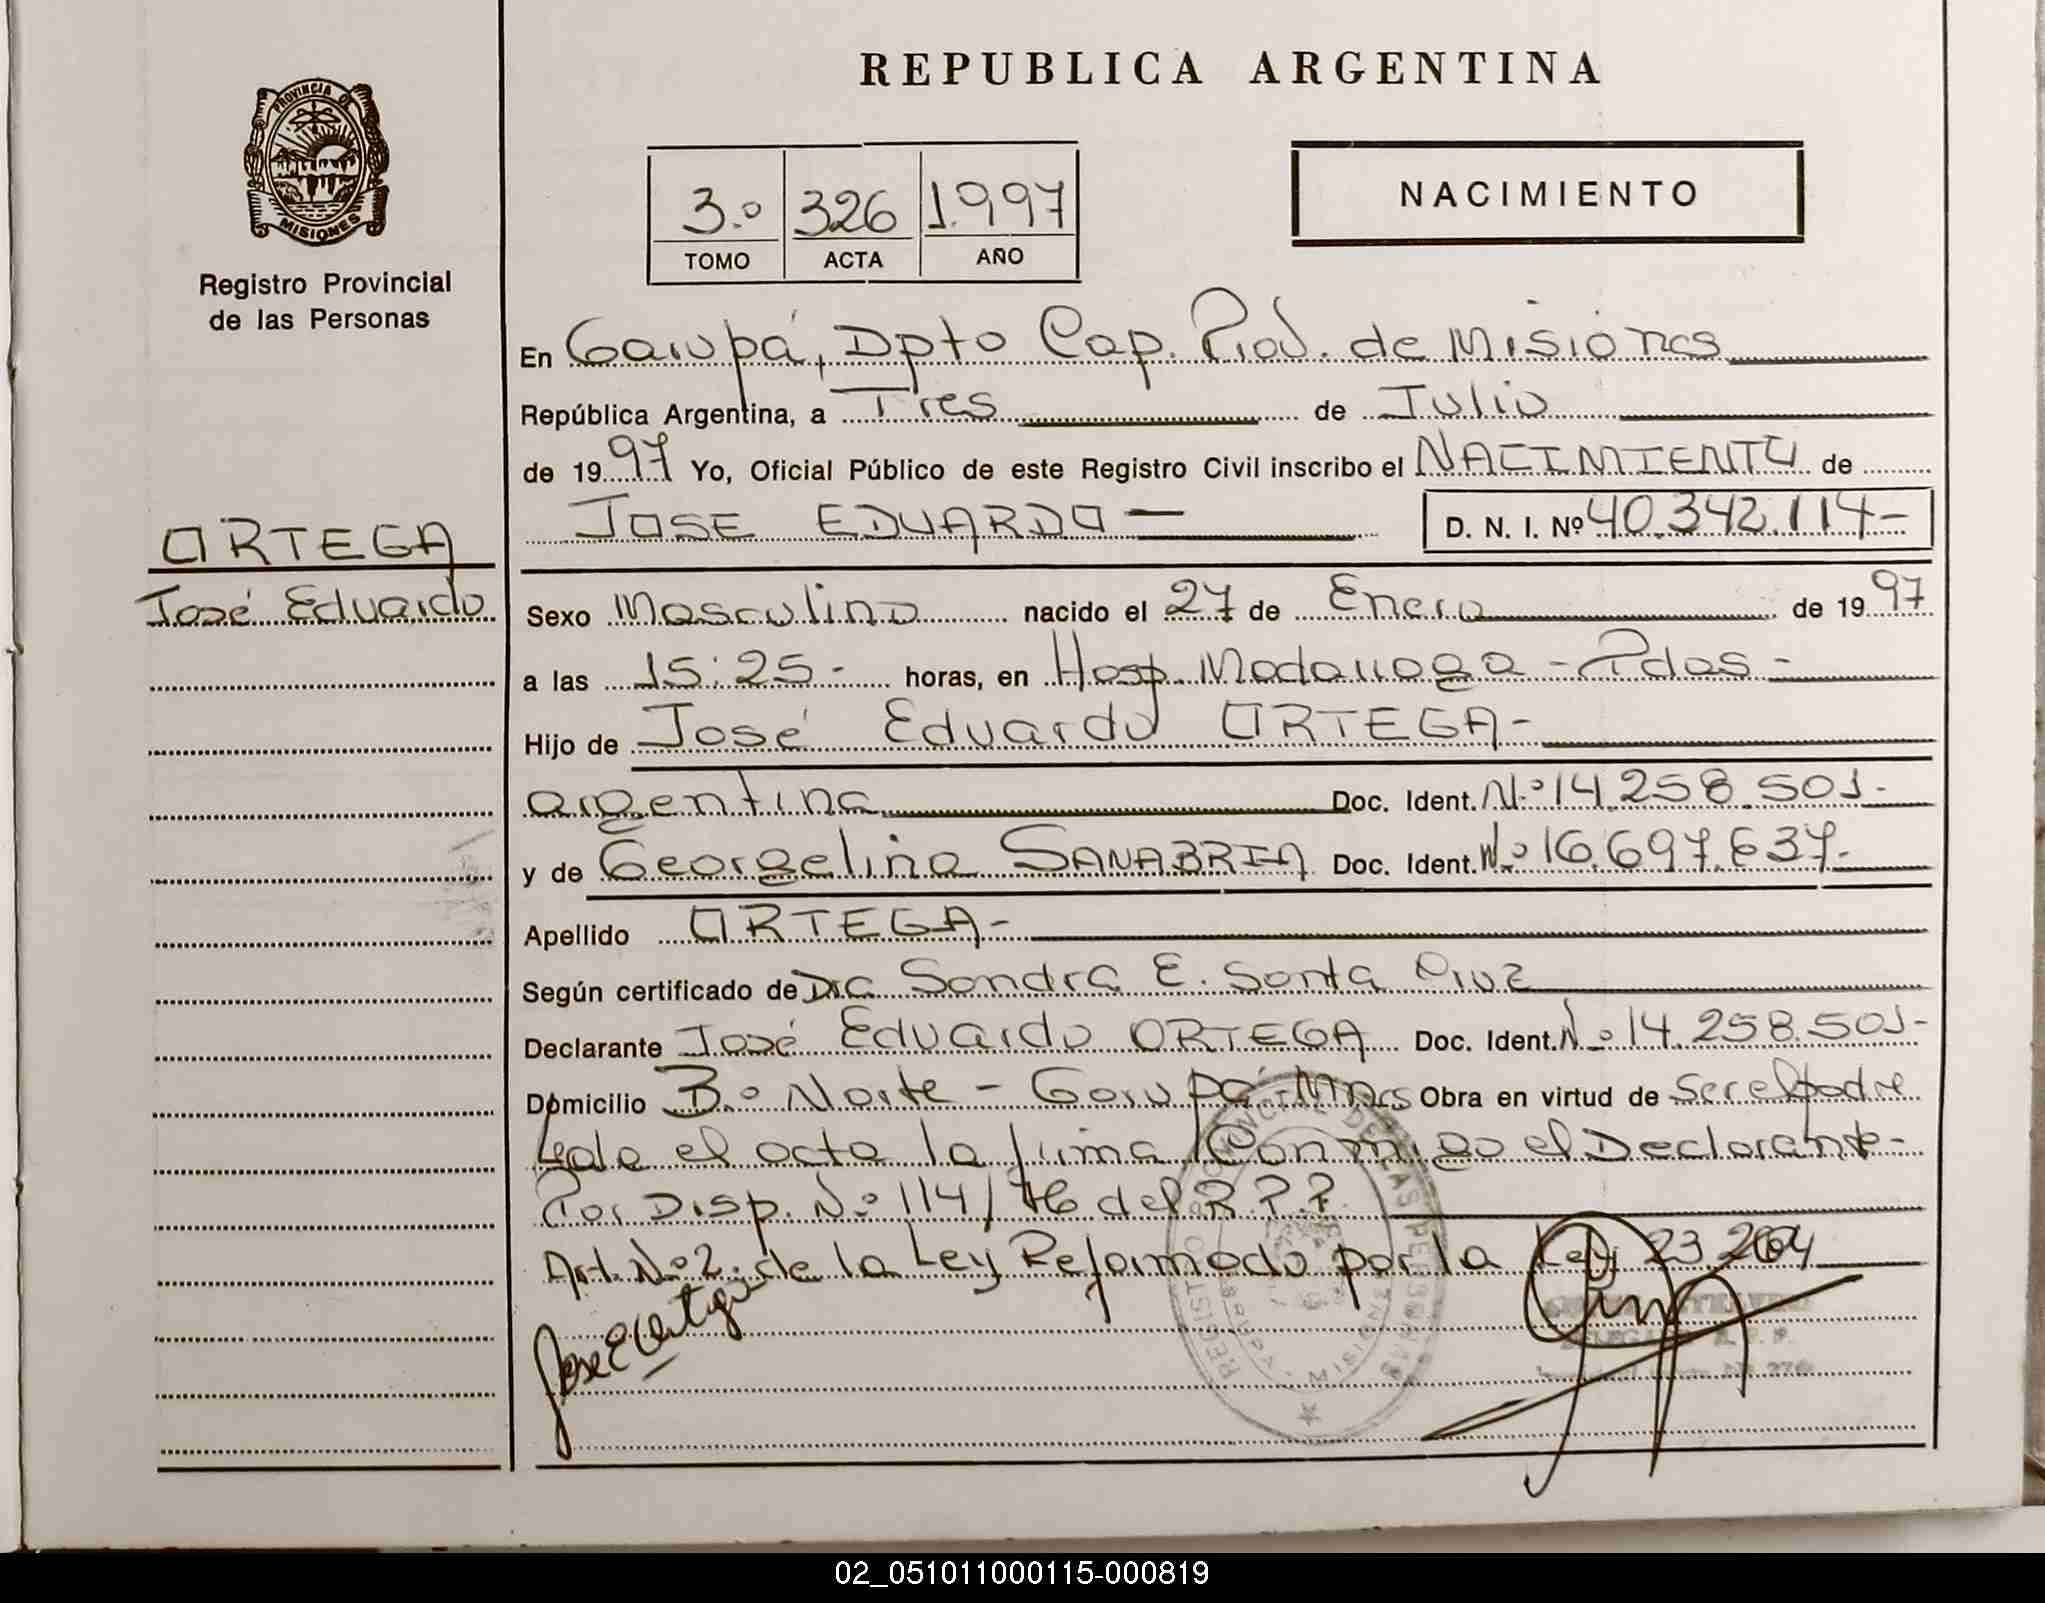 REPUBLICA ARGENTINA
PROVINCIA DE
MISIONES
Registro Provincial
de las Personas
3.º 326 1.997
TOMO ACTA AÑO
NACIMIENTO
En Garupá, Dpto Cap. Prov. de Misiones
República Argentina, a Tres de Julio
de 1997 Yo, Oficial Público de este Registro Civil inscribo el NACIMIENTO de
JOSE EDUARDO — D. N. I. Nº 40.342.114-
ORTEGA
José Eduardo
Sexo Masculino nacido el 27 de Enero de 1997
a las 15:25- horas, en Hosp. Madariaga - Pdas -
Hijo de José Eduardo ORTEGA-
argentina Doc. Ident. N.º 14.258.501-
y de Georgelina SANABRIA Doc. Ident. N.º 16.697.637-
Apellido ORTEGA-
Según certificado de Dra Sandra E. Santa Cruz
Declarante José Eduardo ORTEGA Doc. Ident. N.º 14.258.501-
Domicilio B.º Norte - Garupá Mnes Obra en virtud de ser el padre
Leda el acta la firma Conmigo el Declarante-
Por Disp. N.º 114/76 del R.P.P.
Art. Nº 2. de la Ley Reformado por la Ley 23.264
Jose E Ortega
02_051011000115-000819